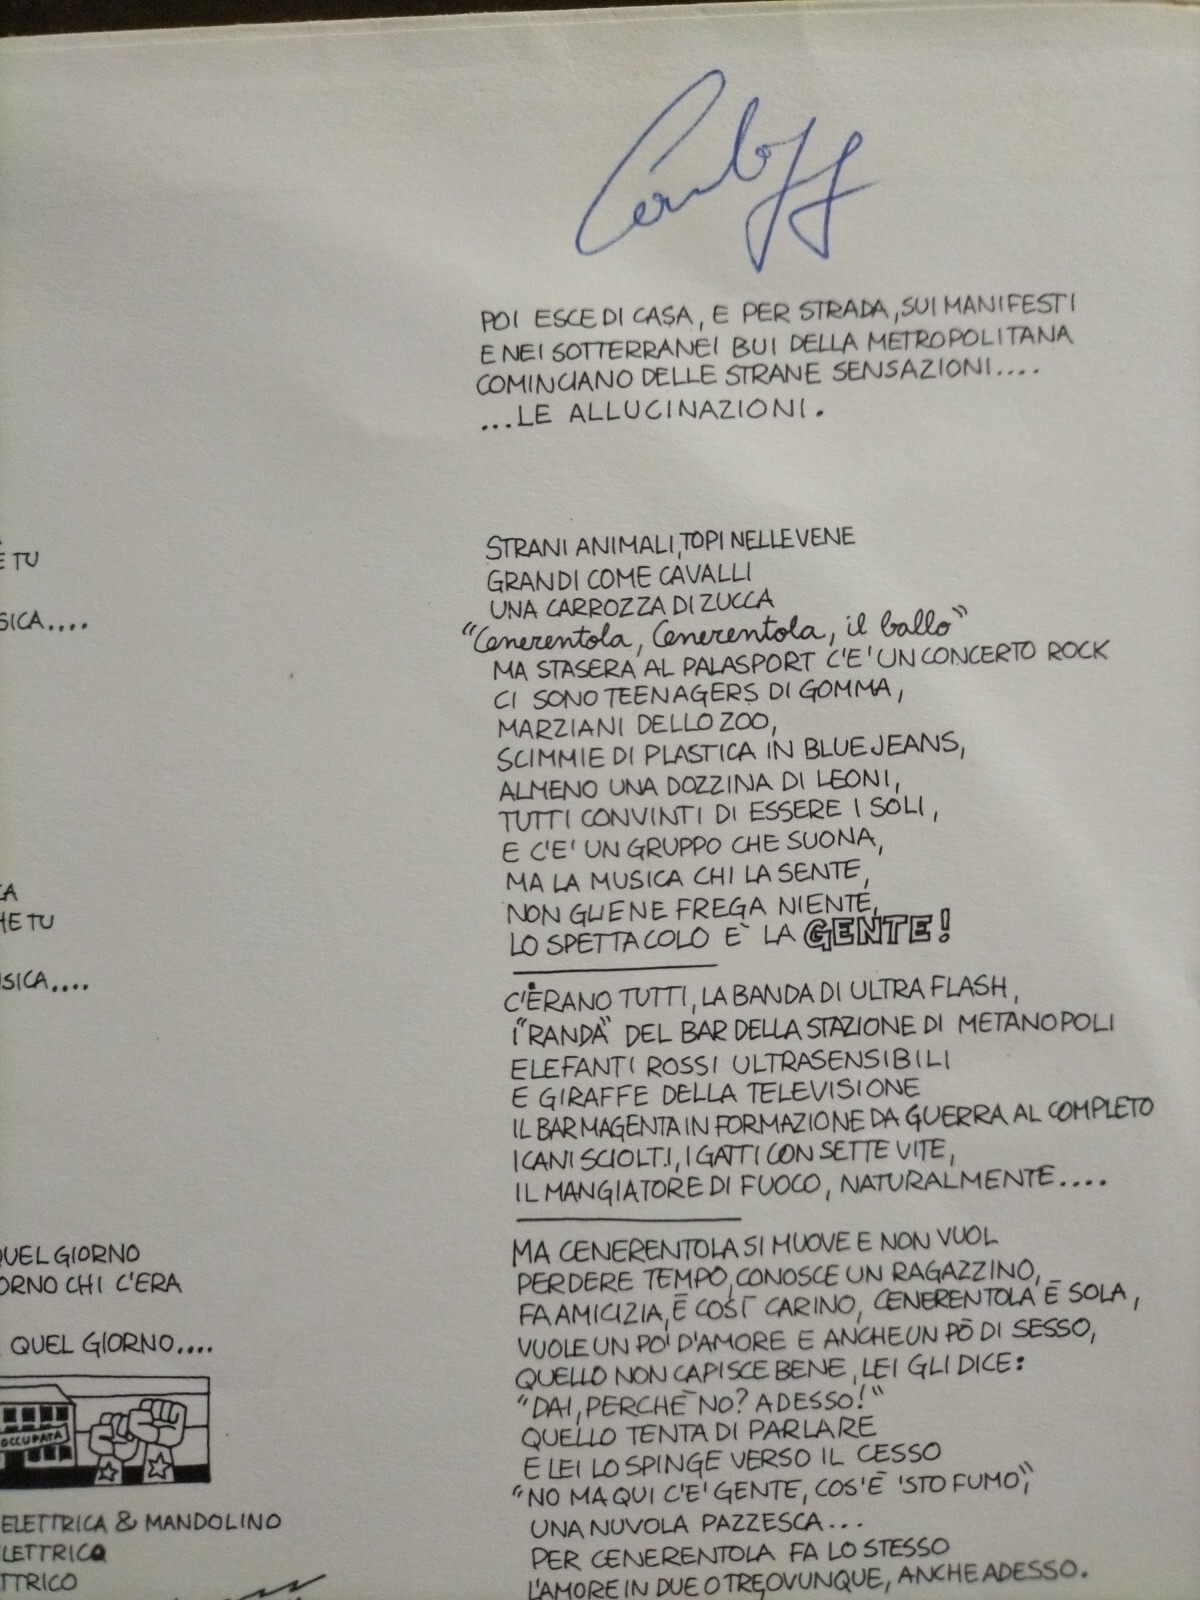 POI ESCE DI CASA, E PER STRADA, SUI MANIFESTI
E NEI SOTTERRANEI BUI DELLA METROPOLITANA
COMINCIANO DELLE STRANE SENSAZIONI....
...LE ALLUCINAZIONI.
STRANI ANIMALI, TOPI NELLE VENE
GRANDI COME CAVALLI
UNA CARROZZA DI ZUCCA
"Cenerentola, Cenerentola, il ballo"
MA STASERA AL PALASPORT C'E' UN CONCERTO ROCK
CI SONO TEENAGERS DI GOMMA,
MARZIANI DELLO ZOO,
SCIMMIE DI PLASTICA IN BLUE JEANS,
ALMENO UNA DOZZINA DI LEONI,
TUTTI CONVINTI DI ESSERE I SOLI,
E C'E' UN GRUPPO CHE SUONA,
MA LA MUSICA CHI LA SENTE,
NON GLIENE FREGA NIENTE,
LO SPETTACOLO E` LA GENTE!
C'ERANO TUTTI, LA BANDA DI ULTRA FLASH,
I "RANDA" DEL BAR DELLA STAZIONE DI METANOPOLI
ELEFANTI ROSSI ULTRASENSIBILI
E GIRAFFE DELLA TELEVISIONE
IL BAR MAGENTA IN FORMAZIONE DA GUERRA AL COMPLETO
I CANI SCIOLTI, I GATTI CON SETTE VITE,
IL MANGIATORE DI FUOCO, NATURALMENTE....
MA CENERENTOLA SI MUOVE E NON VUOL
PERDERE TEMPO, CONOSCE UN RAGAZZINO,
FA AMICIZIA, È COSÌ CARINO, CENERENTOLA È SOLA,
VUOLE UN PO' D'AMORE E ANCHE UN PÒ DI SESSO,
QUELLO NON CAPISCE BENE, LEI GLI DICE:
"DAI, PERCHÈ NO? ADESSO!"
QUELLO TENTA DI PARLARE
E LEI LO SPINGE VERSO IL CESSO
"NO MA QUI C'E' GENTE, COS'È 'STO FUMO",
UNA NUVOLA PAZZESCA...
PER CENERENTOLA FA LO STESSO
L'AMORE IN DUE O TRE, OVUNQUE, ANCHE ADESSO.
E TU
SICA....
CA
HE TU
USICA....
QUEL GIORNO
ORNO CHI C'ERA
QUEL GIORNO....
OCCUPATA
ELETTRICA & MANDOLINO
LETTRICA
TTRICO